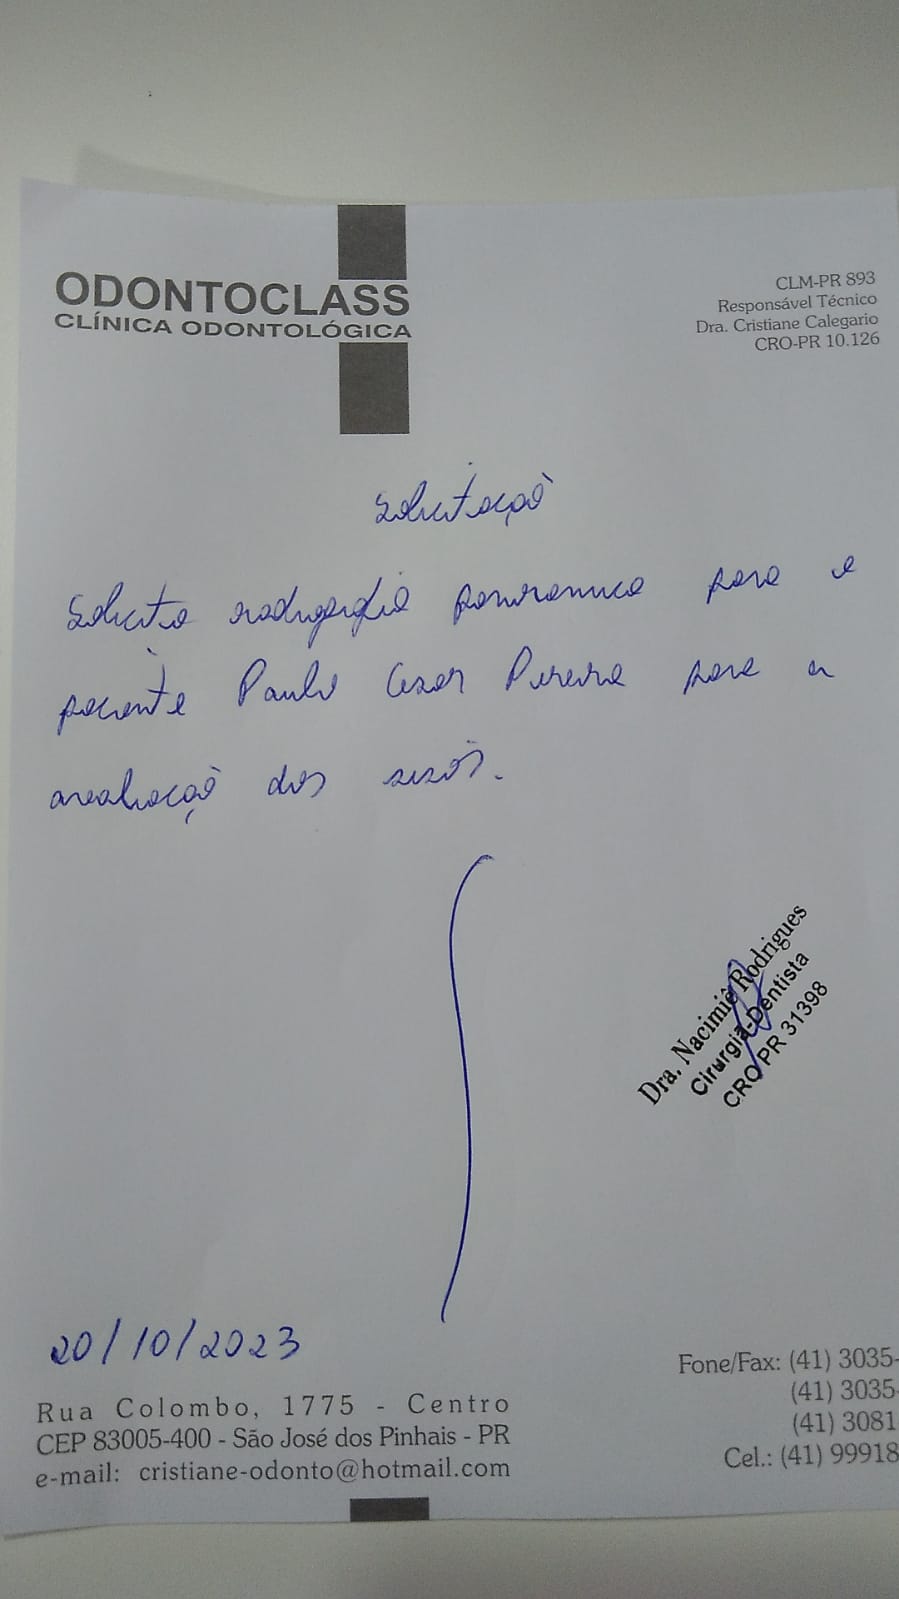 ODONTOCLASS
CLÍNICA ODONTOLÓGICA
CLM-PR 893
Responsável Técnico
Dra. Cristiane Calegario
CRO-PR 10.126
Solicitação
Solicito radiografia panoramica para o
paciente Paulo Cesar Pereira para a
avaliação dos sisos.
Dra. Nacimiê Rodrigues
Cirurgiã-Dentista
CRO/PR 31398
20/10/2023
Rua Colombo, 1775 - Centro
CEP 83005-400 - São José dos Pinhais - PR
e-mail: cristiane-odonto@hotmail.com
Fone/Fax: (41) 3035-
(41) 3035-
(41) 3081
Cel.: (41) 99918